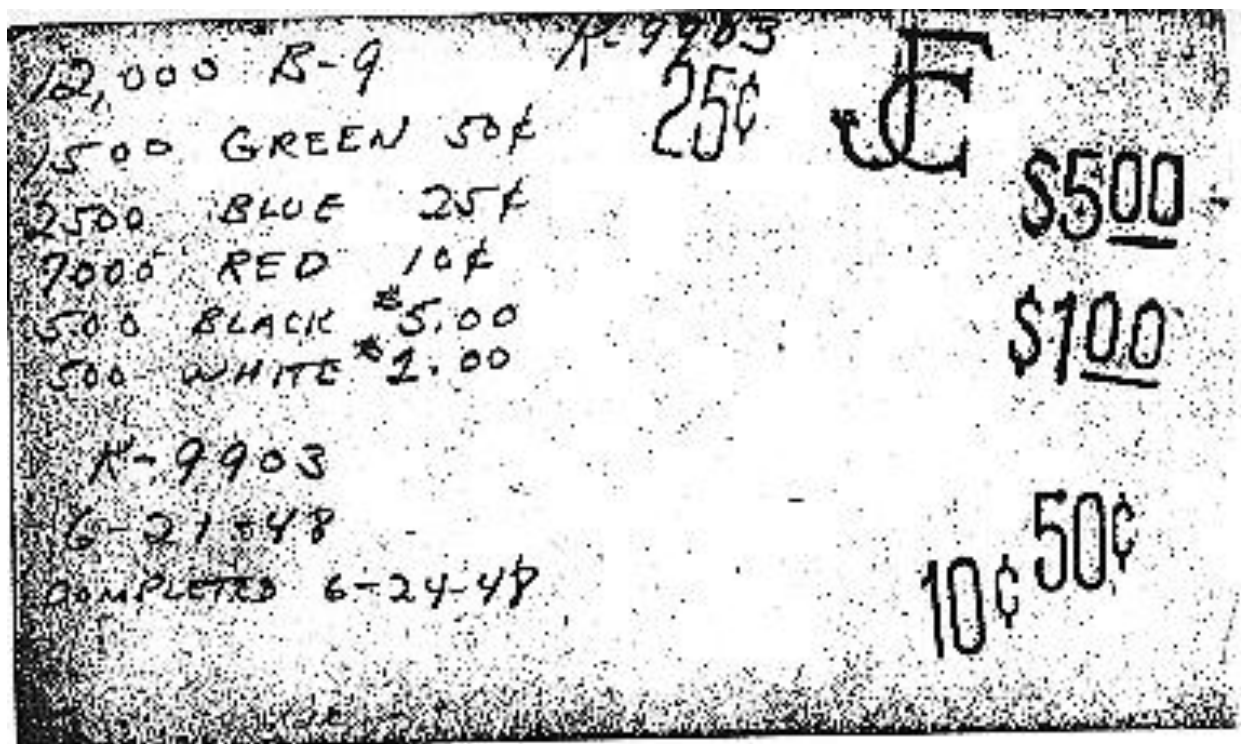 12,000 B-9
1500 GREEN 50¢
2500 BLUE 25¢
7000 RED 10¢
500 BLACK $5.00
500 WHITE $1.00
K-9903
6-21-48
COMPLETED 6-24-48
K-9903
25¢
JC
$500
$100
50¢
10¢